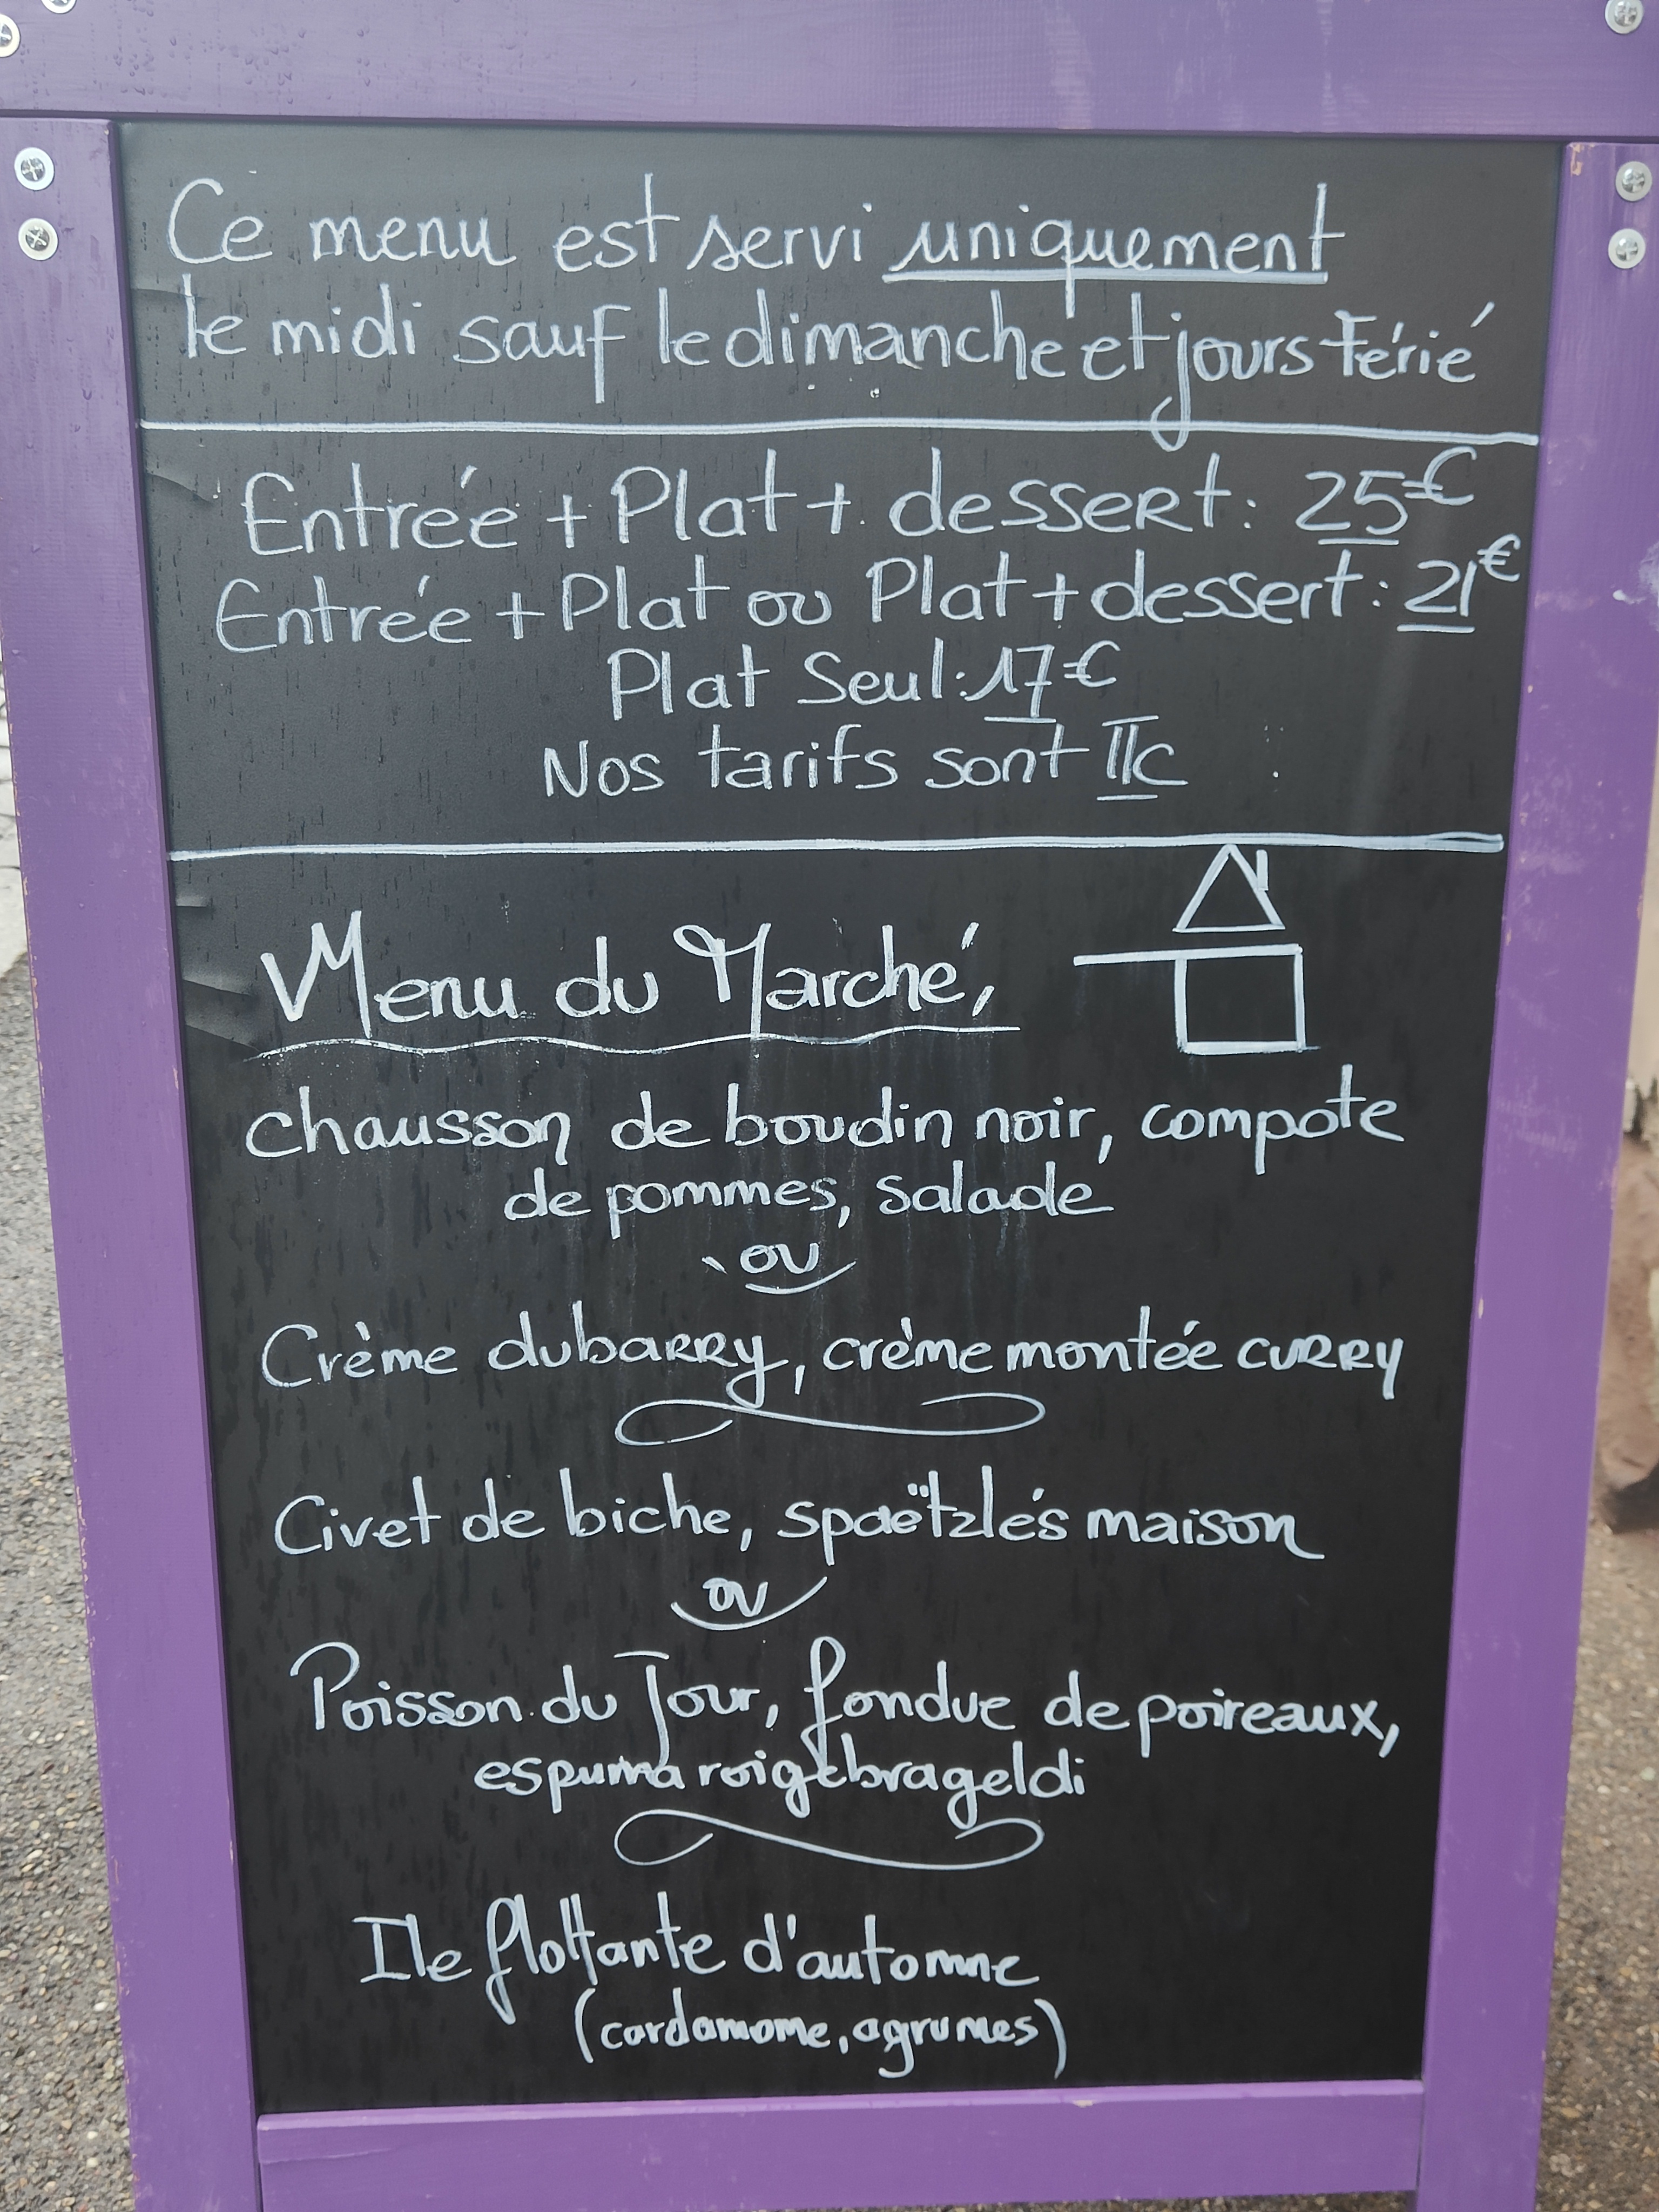 Ce menu est servi uniquement
le midi sauf le dimanche et jours Férié
Entrée + Plat + dessert : 25€
Entrée + Plat ou Plat + dessert : 21€
Plat Seul : 17€
Nos tarifs sont TTC
Menu du Marché,
Chausson de boudin noir, compote
de pommes, salade
ou
Crème dubarry, crème montée curry
Civet de biche, spaëtzlés maison
ou
Poisson du Jour, fondue de poireaux,
espuma roigebrageldi
Ile flottante d'automne
(cardamome, agrumes)